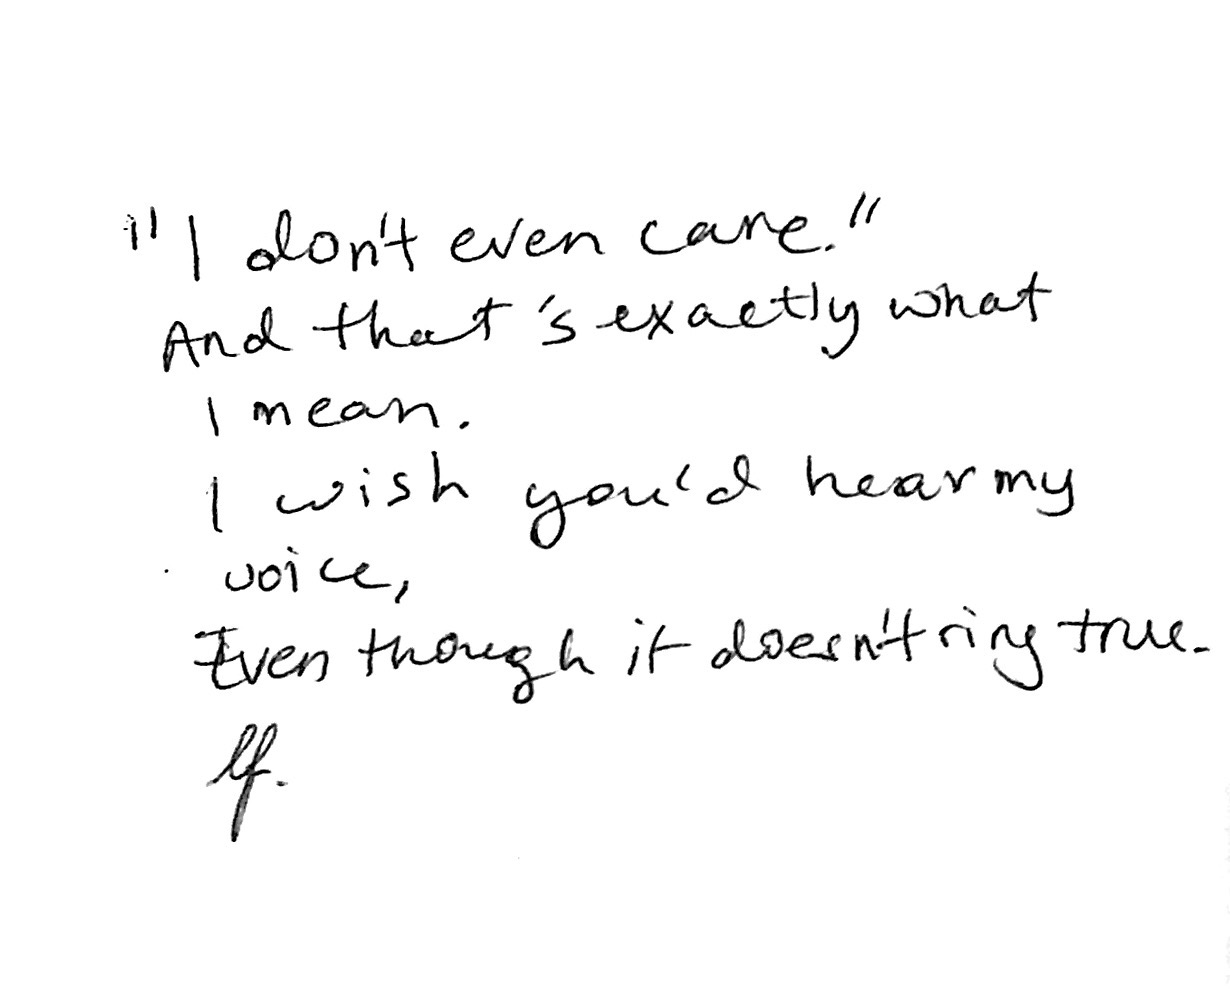 "I don't even care."
And that's exactly what
I mean.
I wish you'd hear my
voice,
Even though it doesn't ring true.
lf.